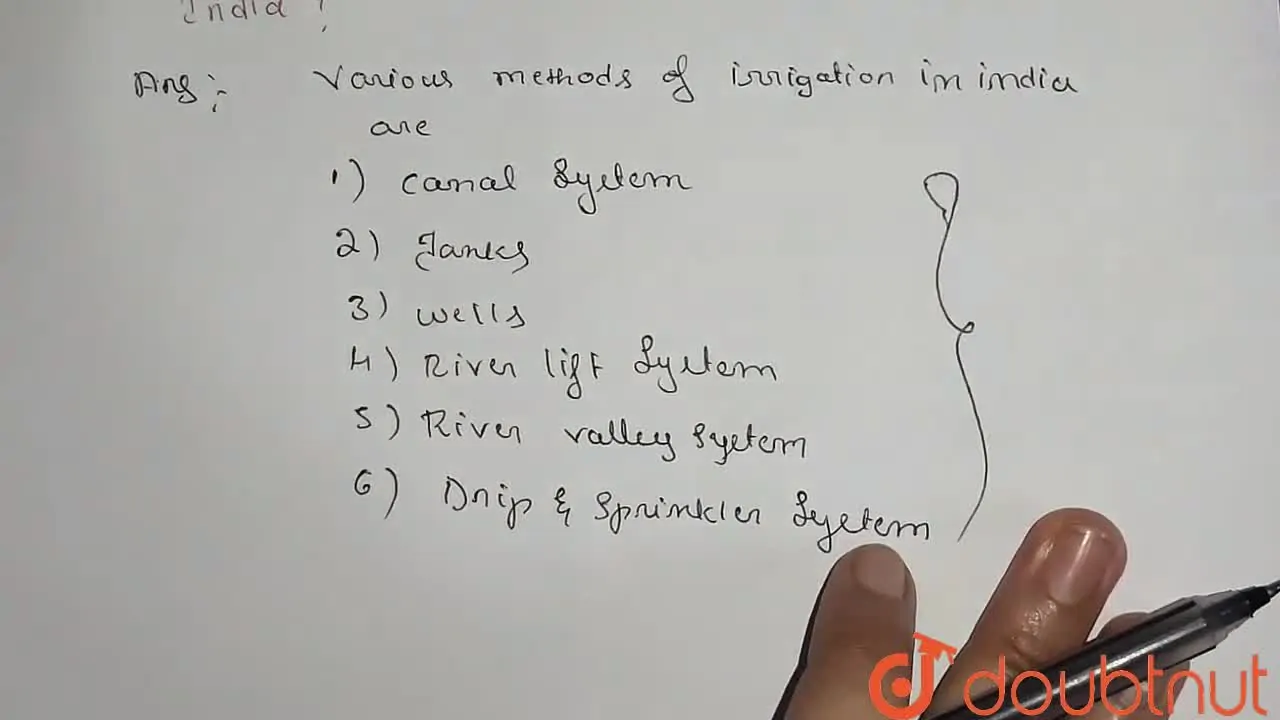 India ?
Ans :- Various methods of irrigation in india
are
1) Canal System
2) Tanks
3) Wells
4) River lift System
5) River valley System
6) Drip & Sprinkler System
doubtnut